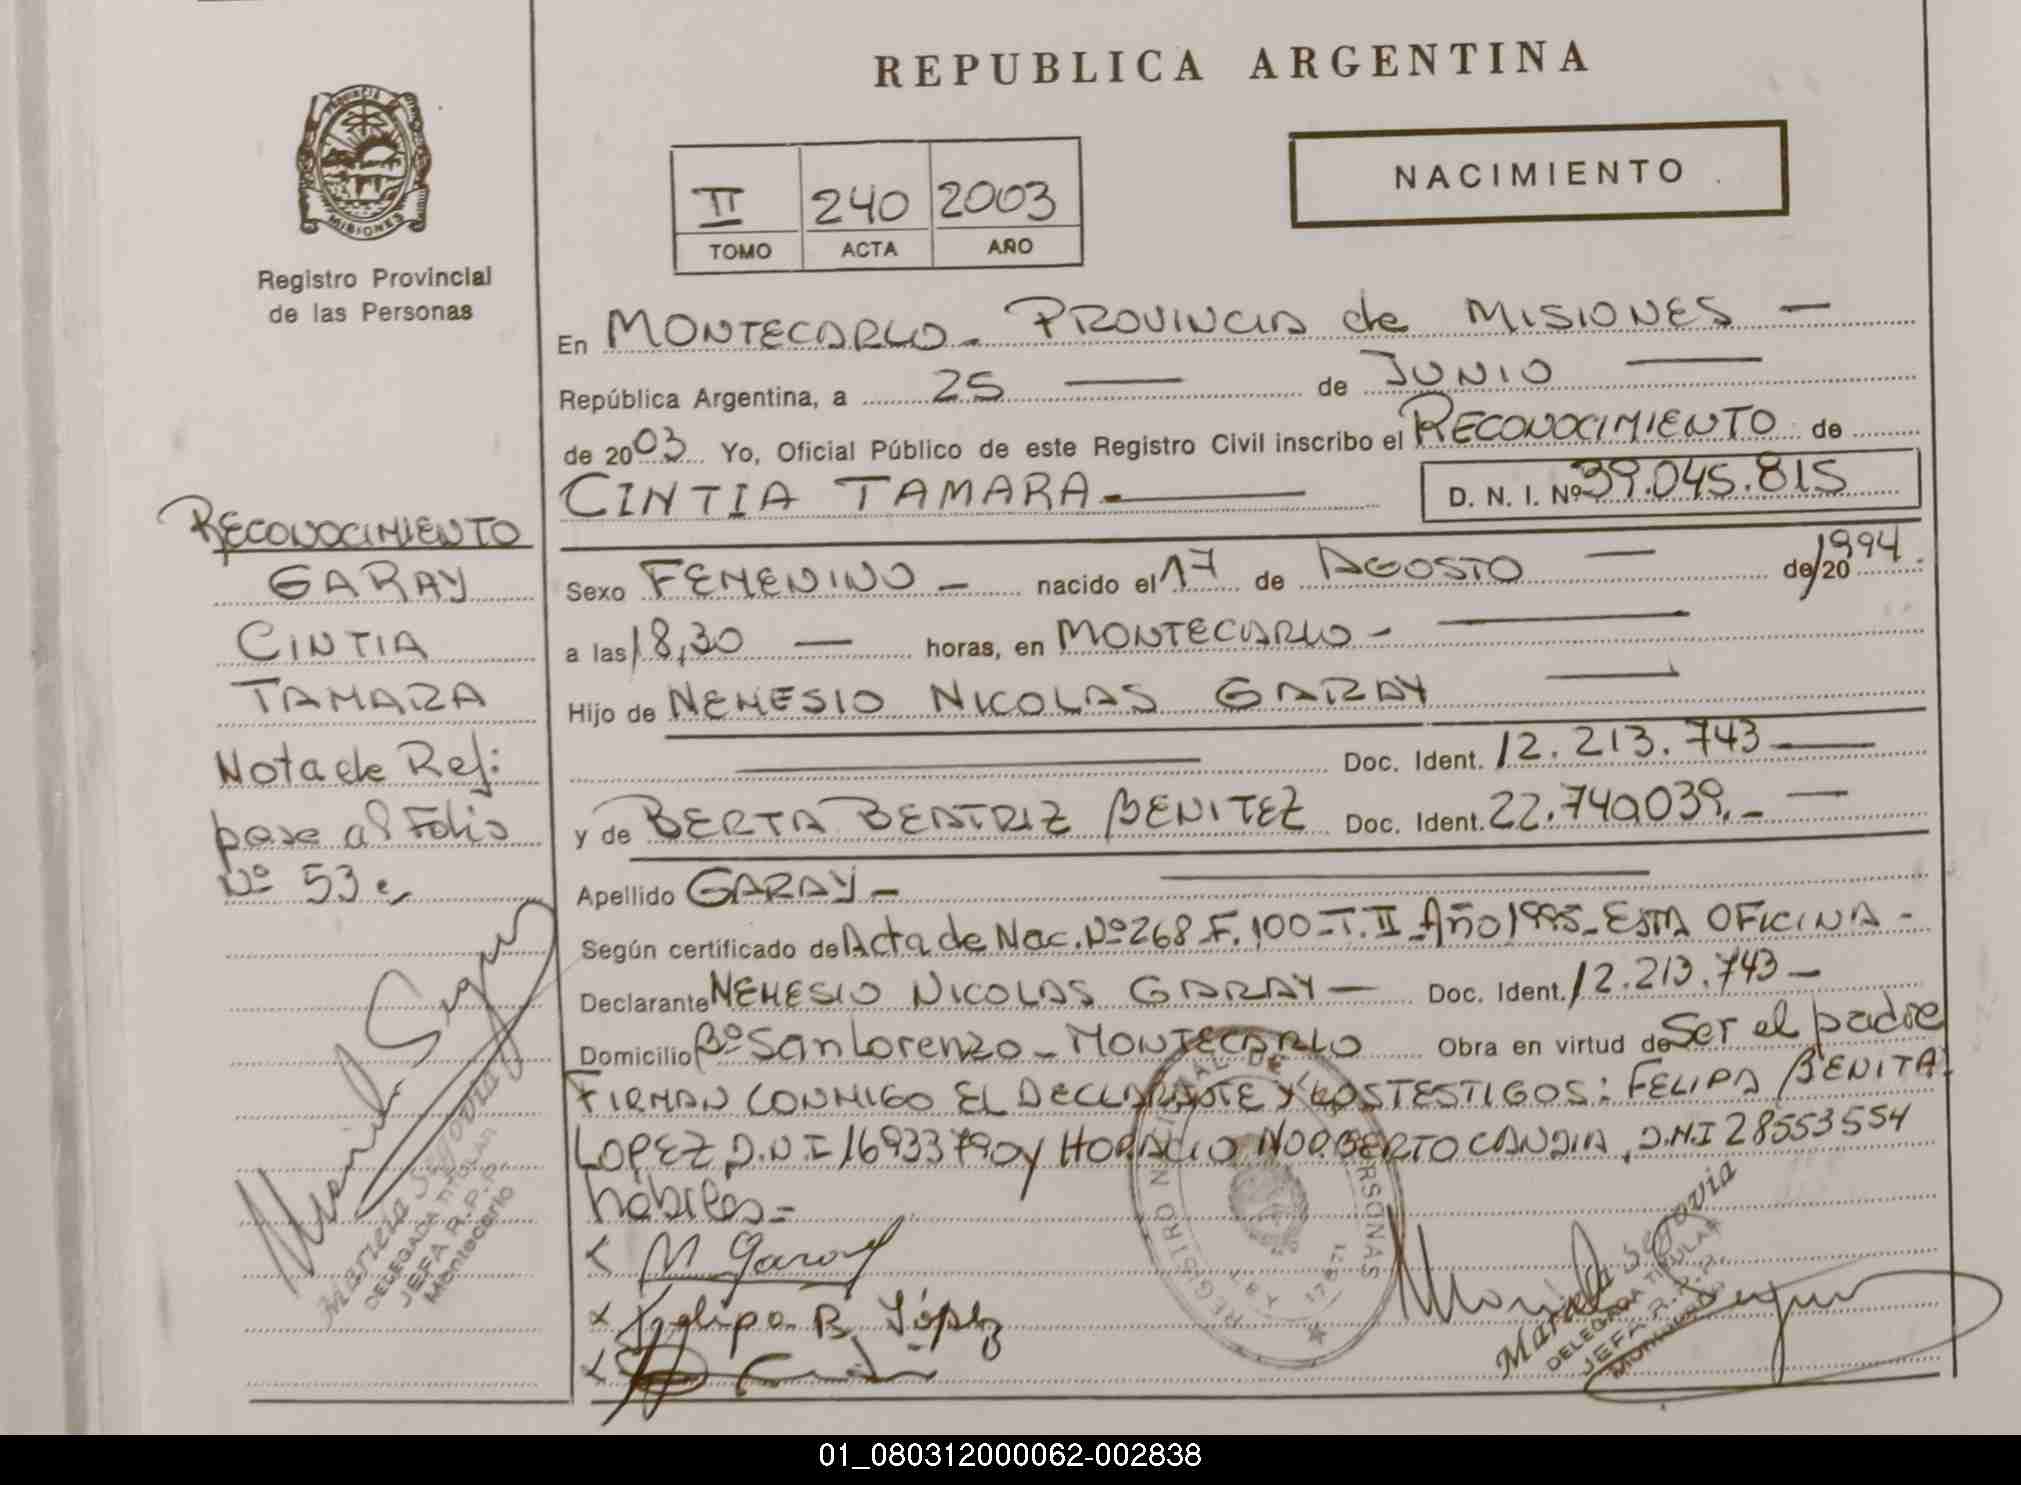 REPUBLICA ARGENTINA
PROVINCIA DE
MISIONES
Registro Provincial
de las Personas
II 240 2003
TOMO ACTA AÑO
NACIMIENTO
En MONTECARLO - PROVINCIA de MISIONES —
República Argentina, a 25 — de JUNIO —
de 2003 Yo, Oficial Público de este Registro Civil inscribo el RECONOCIMIENTO de
CINTIA TAMARA — D. N. I. Nº 39.045.815
Sexo FEMENINO - nacido el 17 de AGOSTO — de/20 1994.
a las 18,30 — horas, en MONTECARLO - —
Hijo de NEMESIO NICOLAS GARAY —
— Doc. Ident. 12.213.743 —
y de BERTA BEATRIZ BENITEZ Doc. Ident. 22.740.039.- —
Apellido GARAY - —
Según certificado de Acta de Nac. Nº 268 - F. 100 - T. II - Año 1995 - ESTA OFICINA -
Declarante NEMESIO NICOLAS GARAY — Doc. Ident. 12.213.743 —
Domicilio Bº San Lorenzo - MONTECARLO Obra en virtud de Ser el padre
FIRMAN CONMIGO EL DECLARANTE Y LOS TESTIGOS: FELIPA BENITA
LOPEZ D.N.I 16933790 y HORACIO NORBERTO CANDIA, D.N.I 28553554
hábiles =
M Garay
Felipa B. López
RECONOCIMIENTO
GARAY
CINTIA
TAMARA
Nota de Ref:
pase al Folio
Nº 53
Mariela Segovia
DELEGADA TITULAR
JEFA R.P.P.
Montecarlo
REGISTRO NACIONAL DE LAS PERSONAS
Mariela Segovia
DELEGADA TITULAR
JEFA R.P.P.
Montecarlo
01_080312000062-002838